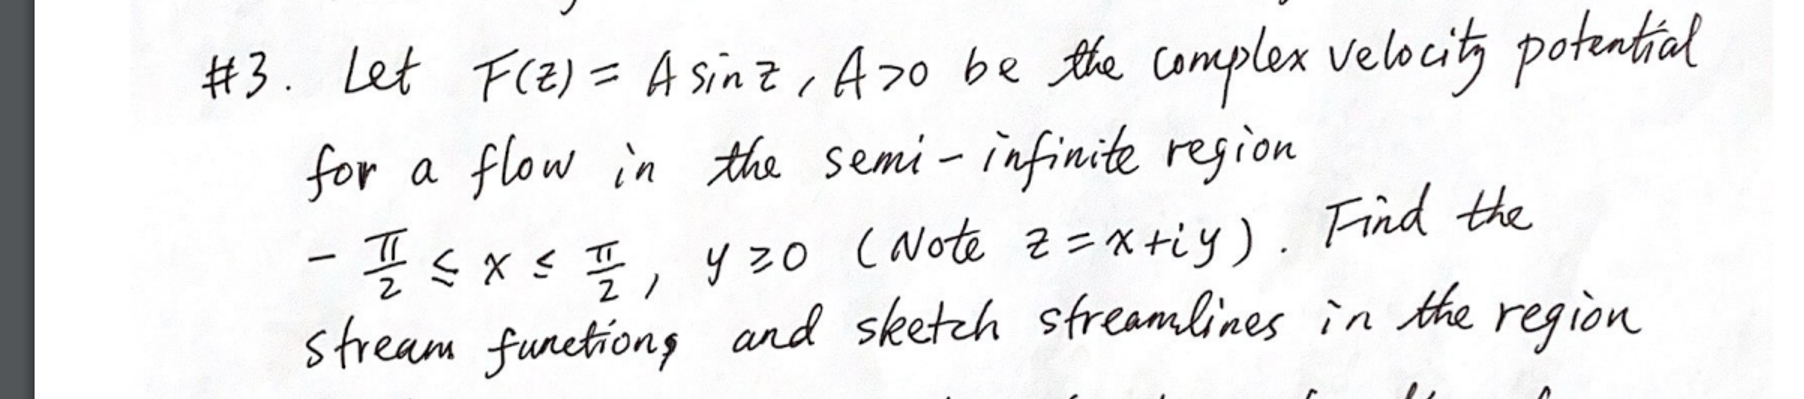 #3. Let F(z) = A sin z, A>0 be the complex velocity potential
for a flow in the semi-infinite region
- π/2 ≤ x ≤ π/2, y ≥ 0 (Note z = x+iy). Find the
stream functions and sketch streamlines in the region